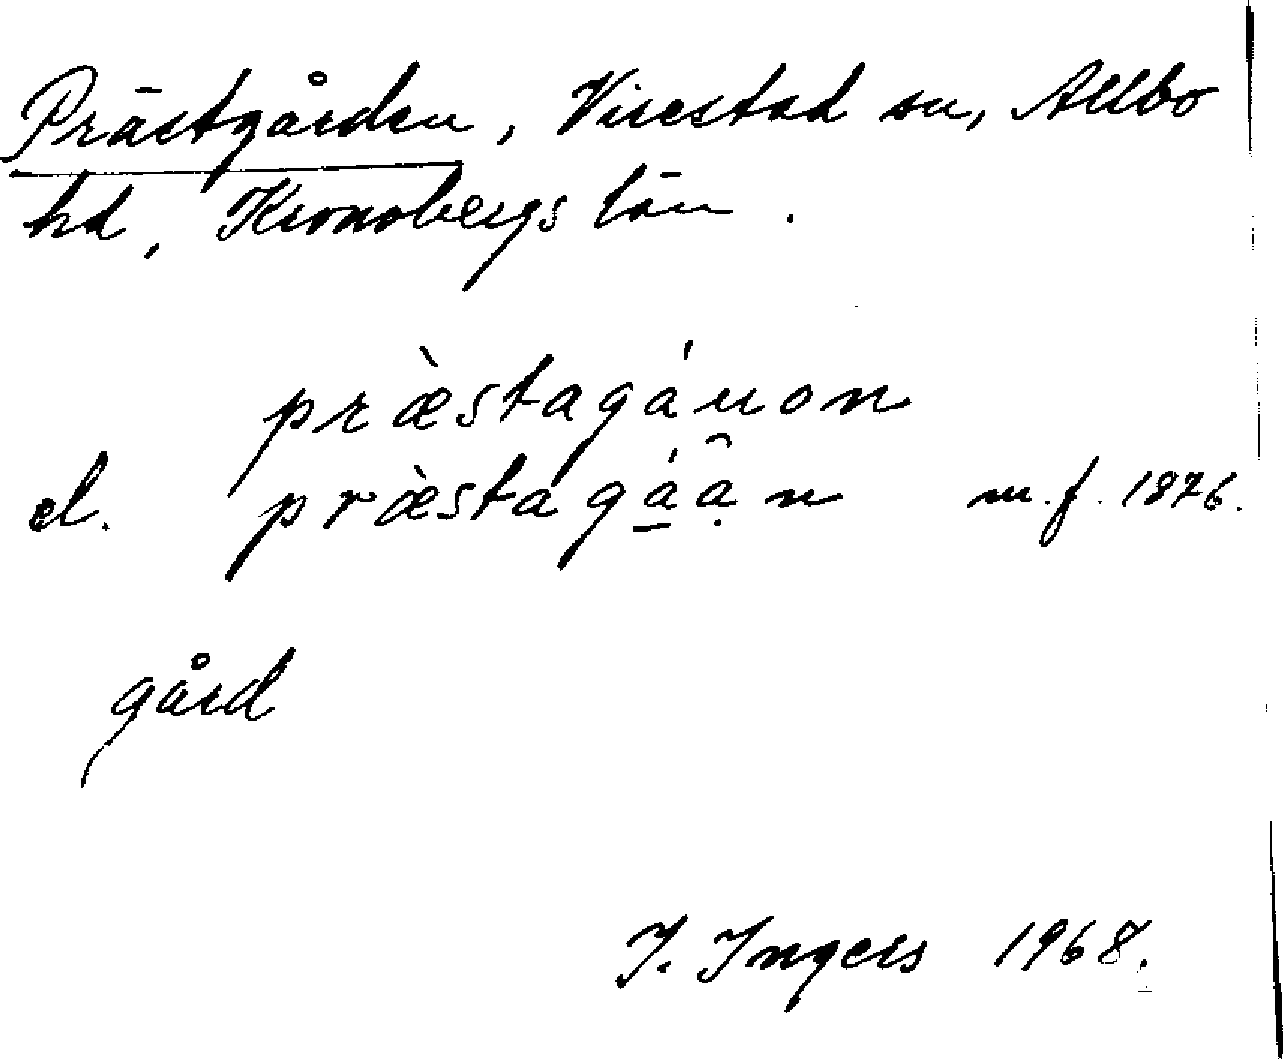 Prästgården, Virestad sn, Allbo
hd, Kronobergs län.
præ̀stagáuon
el. præ̀stagá̱ậ̣n m.f. 1876.
gård
I. Ingers 1968.